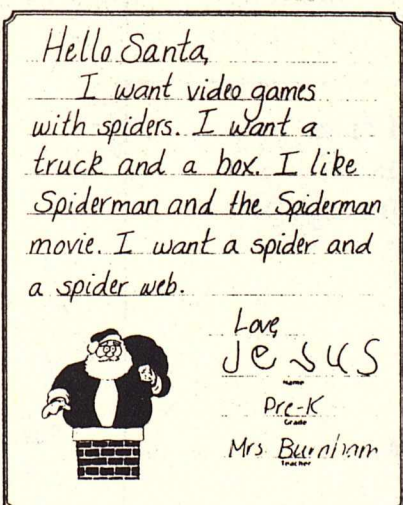 Hello Santa,
I want video games
with spiders. I want a
truck and a box. I like
Spiderman and the Spiderman
movie. I want a spider and
a spider web.
Love,
Jesus
Name
Pre-K
Grade
Mrs. Burnham
Teacher